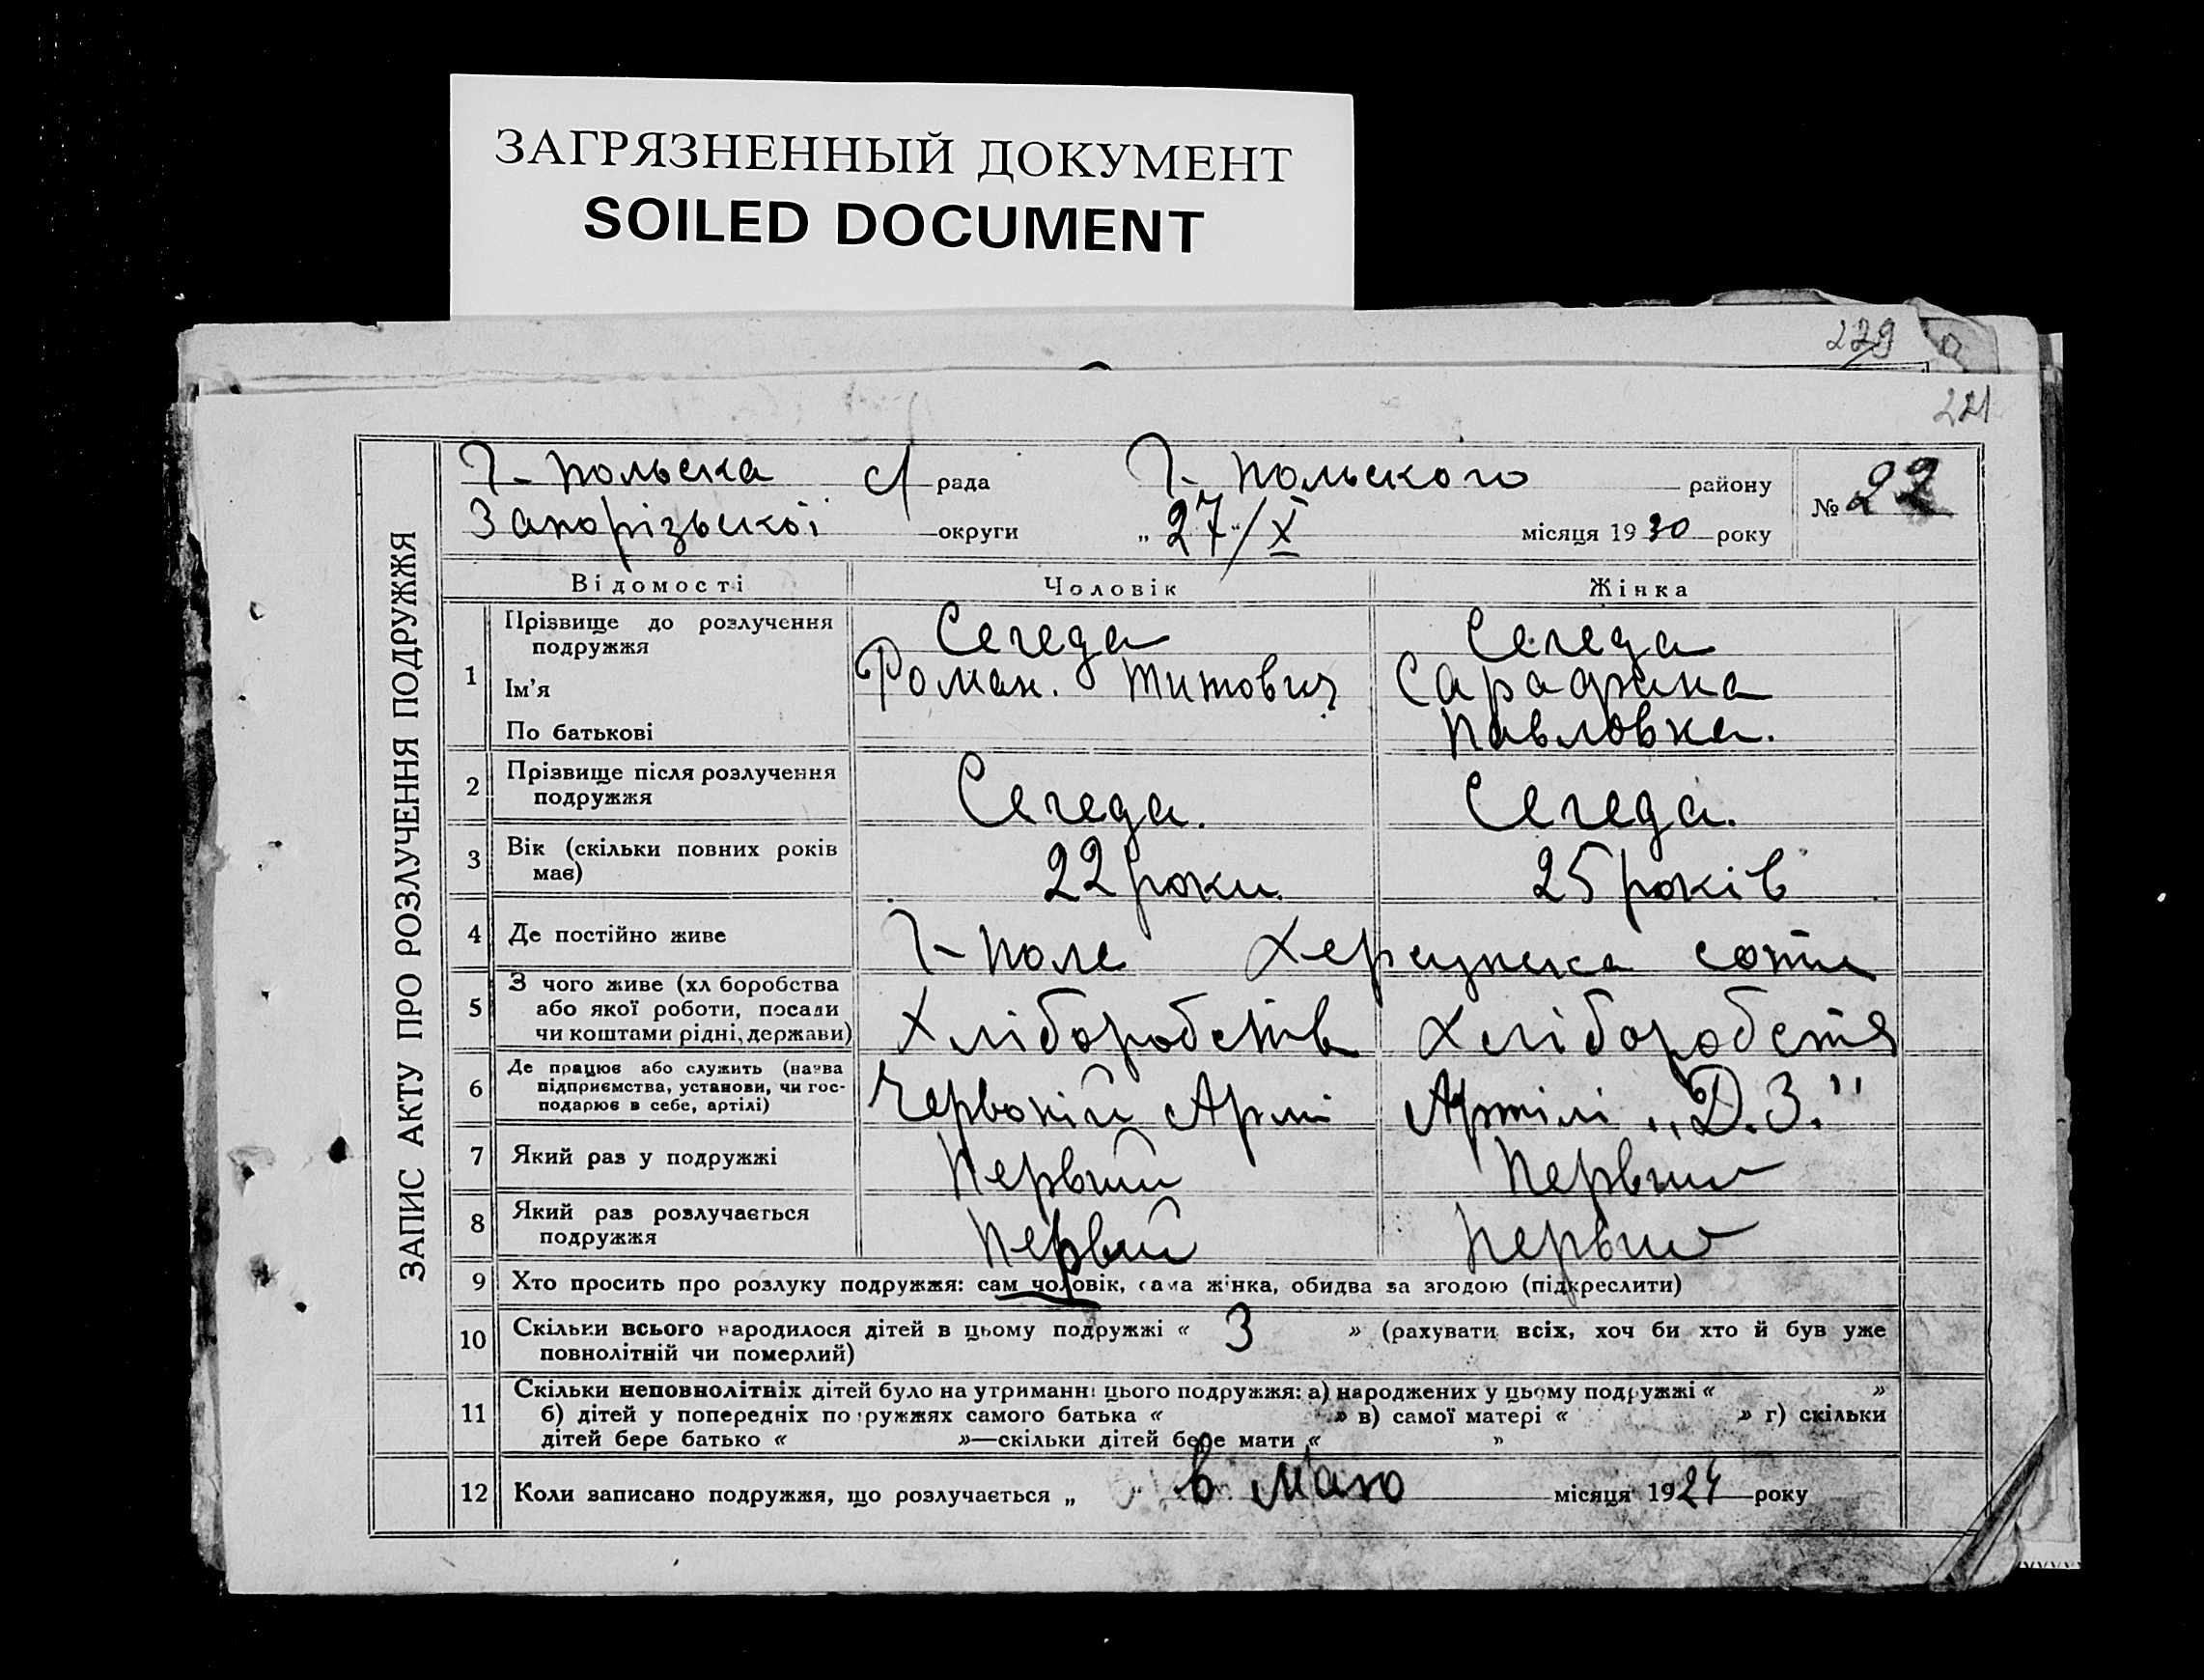 ЗАГРЯЗНЕННЫЙ ДОКУМЕНТ
SOILED DOCUMENT
229
221
Г-польска с/ рада Г-польского району
№ 22
Запорізьскої округи „27/X місяця 1930 року
ЗАПИС АКТУ ПРО РОЗЛУЧЕННЯ ПОДРУЖЖЯ
Відомості Чоловік Жінка
1 Прізвище до розлучення подружжя Сегеда Сегеда
Ім’я Роман. Титович Сарафина
По батькові Павловна.
2 Прізвище після розлучення подружжя Сегеда. Сегеда.
3 Вік (скільки повних років має) 22 роки. 25 років
4 Де постійно живе Г-Поле сотн
5 З чого живе (хл боробства або якої роботи, посади чи коштами рідні, держави) Хліборобств Хліборобств
6 Де працює або служить (назва підприємства, установи, чи господарює в себе, артілі) Червоній Армі Артілі „Д.З."
7 Який раз у подружжі Первий Первий
8 Який раз розлучається подружжя Первий Первий
9 Хто просить про розлуку подружжя: сам чоловік, сама жінка, обидва за згодою (підкреслити)
10 Скільки всього народилося дітей в цьому подружжі « 3 » (рахувати всіх, хоч би хто й був уже
повнолітній чи померлий)
11 Скільки неповнолітніх дітей було на утриманні цього подружжя: а) народжених у цьому подружжі « »
б) дітей у попередніх подружжях самого батька « » в) самої матері « » г) скільки
дітей бере батько « »—скільки дітей бере мати « »
12 Коли записано подружжя, що розлучається „ в Маю місяця 1924 року